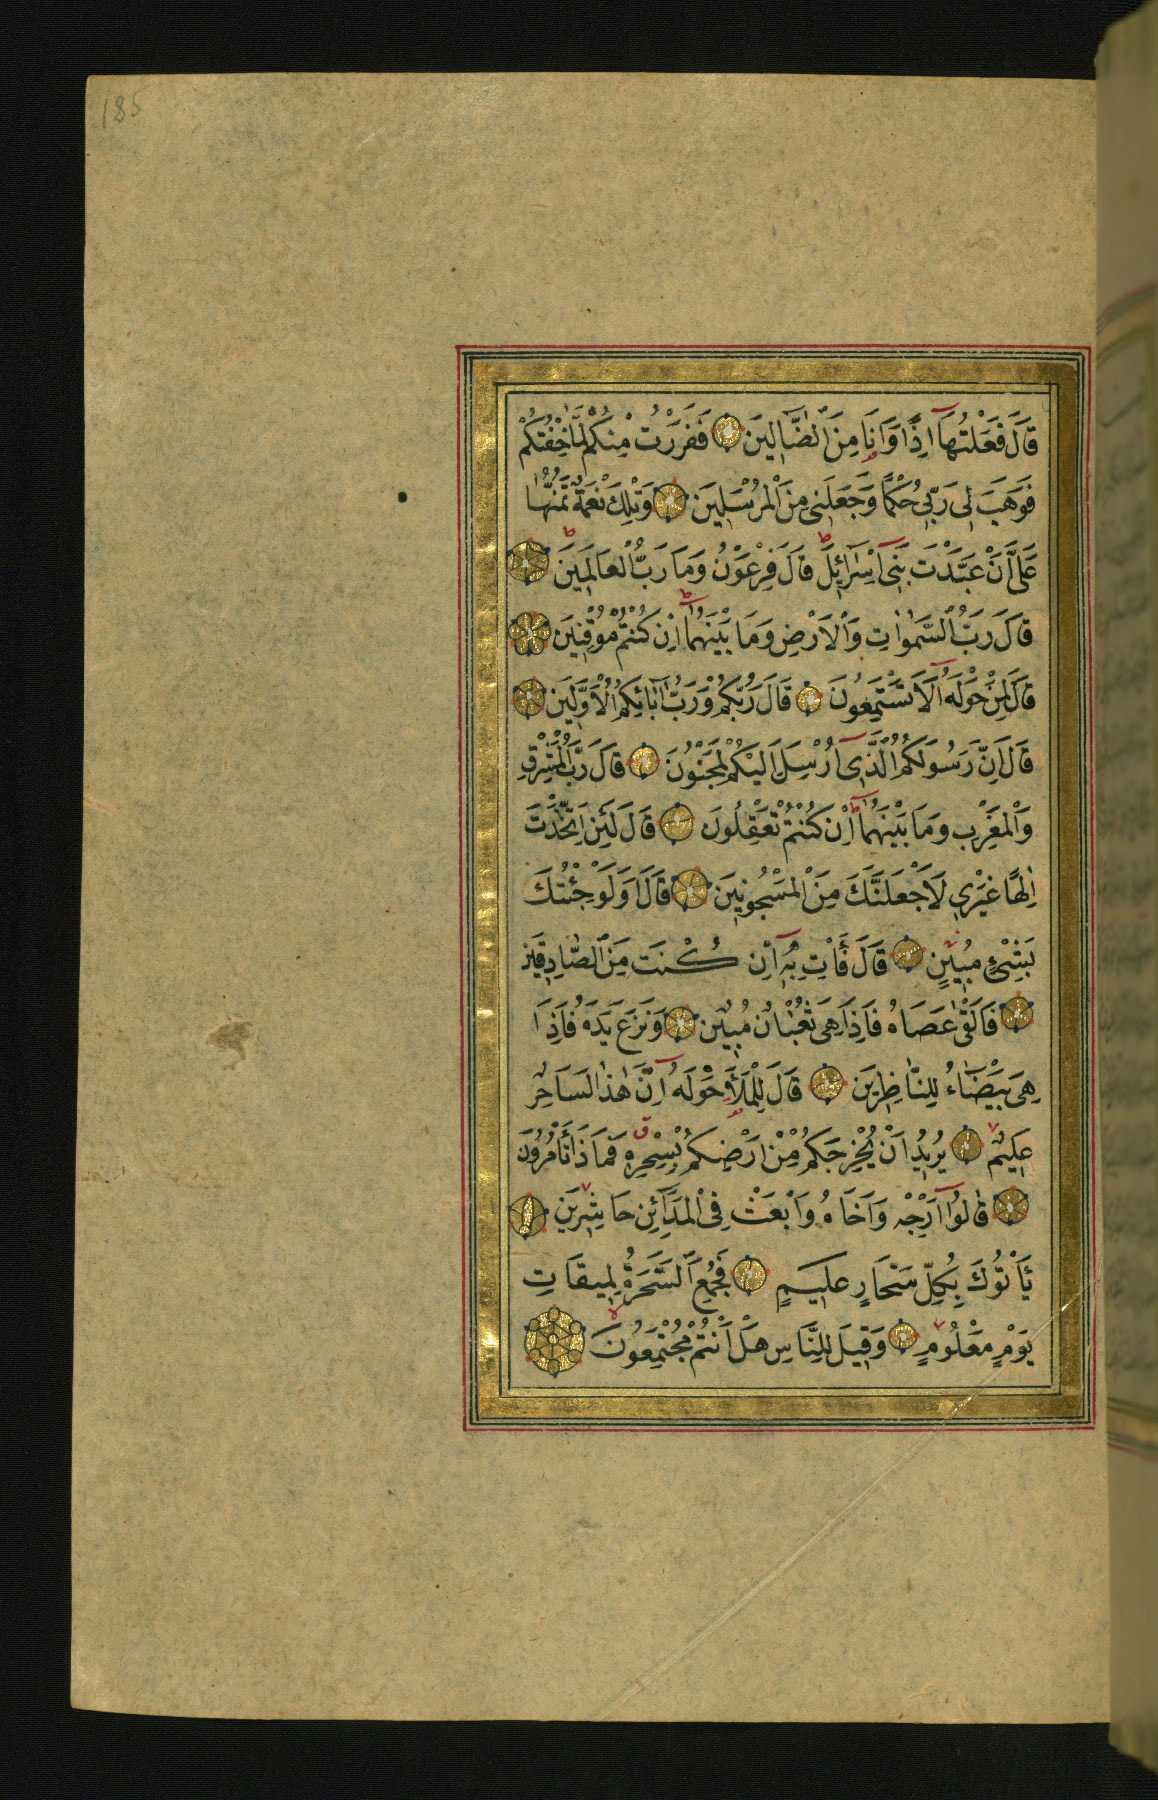 185
قَالَ فَعَلْتُهَا اِذًا وَاَنَا مِنَ الضَّالّٖينَ فَفَرَرْتُ مِنْكُمْ لَمَّا خِفْتُكُمْ
فَوَهَبَ لٖى رَبّٖى حُكْمًا وَجَعَلَنٖى مِنَ الْمُرْسَلٖينَ وَتِلْكَ نِعْمَةٌ تَمُنُّهَا
عَلَىَّ اَنْ عَبَّدْتَ بَنٖى اِسْرَائٖلَ ط قَالَ فِرْعَوْنُ وَمَا رَبُّ الْعَالَمٖينَ ط
قَالَ رَبُّ السَّمٰوَاتِ وَالْاَرْضِ وَمَا بَيْنَهُمَا ط اِنْ كُنْتُمْ مُوقِنٖينَ
قَالَ لِمَنْ حَوْلَهُ اَلَا تَسْتَمِعُونَ قَالَ رَبُّكُمْ وَرَبُّ اٰبَائِكُمُ الْاَوَّلٖينَ
قَالَ اِنَّ رَسُولَكُمُ الَّذٖى اُرْسِلَ اِلَيْكُمْ لَمَجْنُونٌ قَالَ رَبُّ الْمَشْرِقِ
وَالْمَغْرِبِ وَمَا بَيْنَهُمَا ط اِنْ كُنْتُمْ تَعْقِلُونَ قَالَ لَئِنِ اتَّخَذْتَ
اِلٰهًا غَيْرٖى لَاَجْعَلَنَّكَ مِنَ الْمَسْجُونٖينَ قَالَ اَوَلَوْ جِئْتُكَ
بِشَىْءٍ مُبٖينٍ قَالَ فَأْتِ بِهٖ اِنْ كُنْتَ مِنَ الصَّادِقٖينَ
فَاَلْقٰى عَصَاهُ فَاِذَا هِىَ ثُعْبَانٌ مُبٖينٌ وَنَزَعَ يَدَهُ فَاِذَا
هِىَ بَيْضَاءُ لِلنَّاظِرٖينَ قَالَ لِلْمَلَاِ حَوْلَهُ اِنَّ هٰذَا لَسَاحِرٌ
عَلٖيمٌ يُرٖيدُ اَنْ يُخْرِجَكُمْ مِنْ اَرْضِكُمْ بِسِحْرِهٖ ق فَمَاذَا تَأْمُرُونَ
قَالُوا اَرْجِهْ وَاَخَاهُ وَابْعَثْ فِى الْمَدَائِنِ حَاشِرٖينَ
يَأْتُوكَ بِكُلِّ سَحَّارٍ عَلٖيمٍ فَجُمِعَ السَّحَرَةُ لِمٖيقَاتِ
يَوْمٍ مَعْلُومٍ وَقٖيلَ لِلنَّاسِ هَلْ اَنْتُمْ مُجْتَمِعُونَ